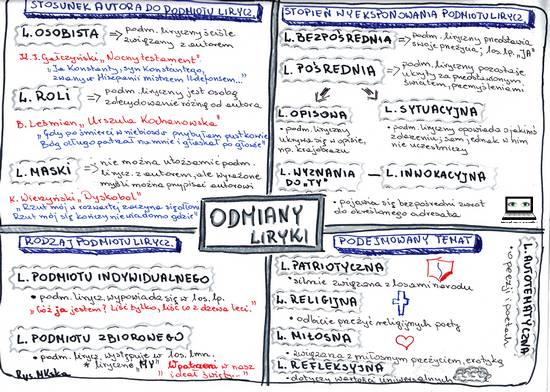 STOSUNEK AUTORA DO PODMIOTU LIRYCZ.
L. OSOBISTA => podm. liryczny ściśle
związany z autorem
K. I. Gałczyński "Nocny testament"
"Ja Konstanty, syn Konstantego,
zwany w Hiszpanii mistrzem Ildefonsem..."
L. ROLI => podm. liryczny jest osobą
zdecydowanie różną od autora
B. Leśmian "Urszula Kochanowska"
"Gdy po śmierci w niebiosów przybyłam pustkowie
Bóg długo patrzał na mnie i głaskał po głowie"
L. MASKI => nie można utożsamić podm.
lirycz. z autorem, ale wyrażone
myśli można przypisać autorowi
K. Wierzyński "Dyskobol"
"Rzut mój w rozwartej zaczyna się dłoni
Rzut mój się kończy nie wiadomo gdzie"
STOPIEŃ WYEKSPONOWANIA PODMIOTU LIRYCZ.
L. BEZPOŚREDNIA => podm. liryczny przedstawia
swoje przeżycia, 1os. l.p. "JA"
L. POŚREDNIA => podm. liryczny pozostaje
ukryty za przedstawionym
światem, przemyśleniami
L. OPISOWA
• podm. liryczny
ukrywa się w opisie,
np. krajobrazu
L. SYTUACYJNA
• podm. liryczny opowiada o jakimś
zdarzeniu, sam jednak w nim
nie uczestniczy
L. WYZNANIA DO "TY" — L. INWOKACYJNA
• pojawia się bezpośredni zwrot
do określonego adresata
ODMIANY
LIRYKI
RODZAJ PODMIOTU LIRYCZ.
L. PODMIOTU INDYWIDUALNEGO
• podm. lirycz. wypowiada się w 1os. l.p.
"Cóż ja jestem? Liść tylko, liść co z drzewa leci."
L. PODMIOTU ZBIOROWEGO
• podm. lirycz. występuje w 1os. l.mn.
* liryczne "MY"
"Wpatrzeni w nasz
ideał święty..."
Rys. MKska
PODEJMOWANY TEMAT
L. PATRIOTYCZNA
• silnie związana z losami narodu
L. RELIGIJNA
• odbicie przeżyć religijnych poety
L. MIŁOSNA
• związana z miłosnym przeżyciem, erotyką
L. REFLEKSYJNA
• dotyczy wartości uniwersalnych
L. AUTOTEMATYCZNA
• o poezji i poetach